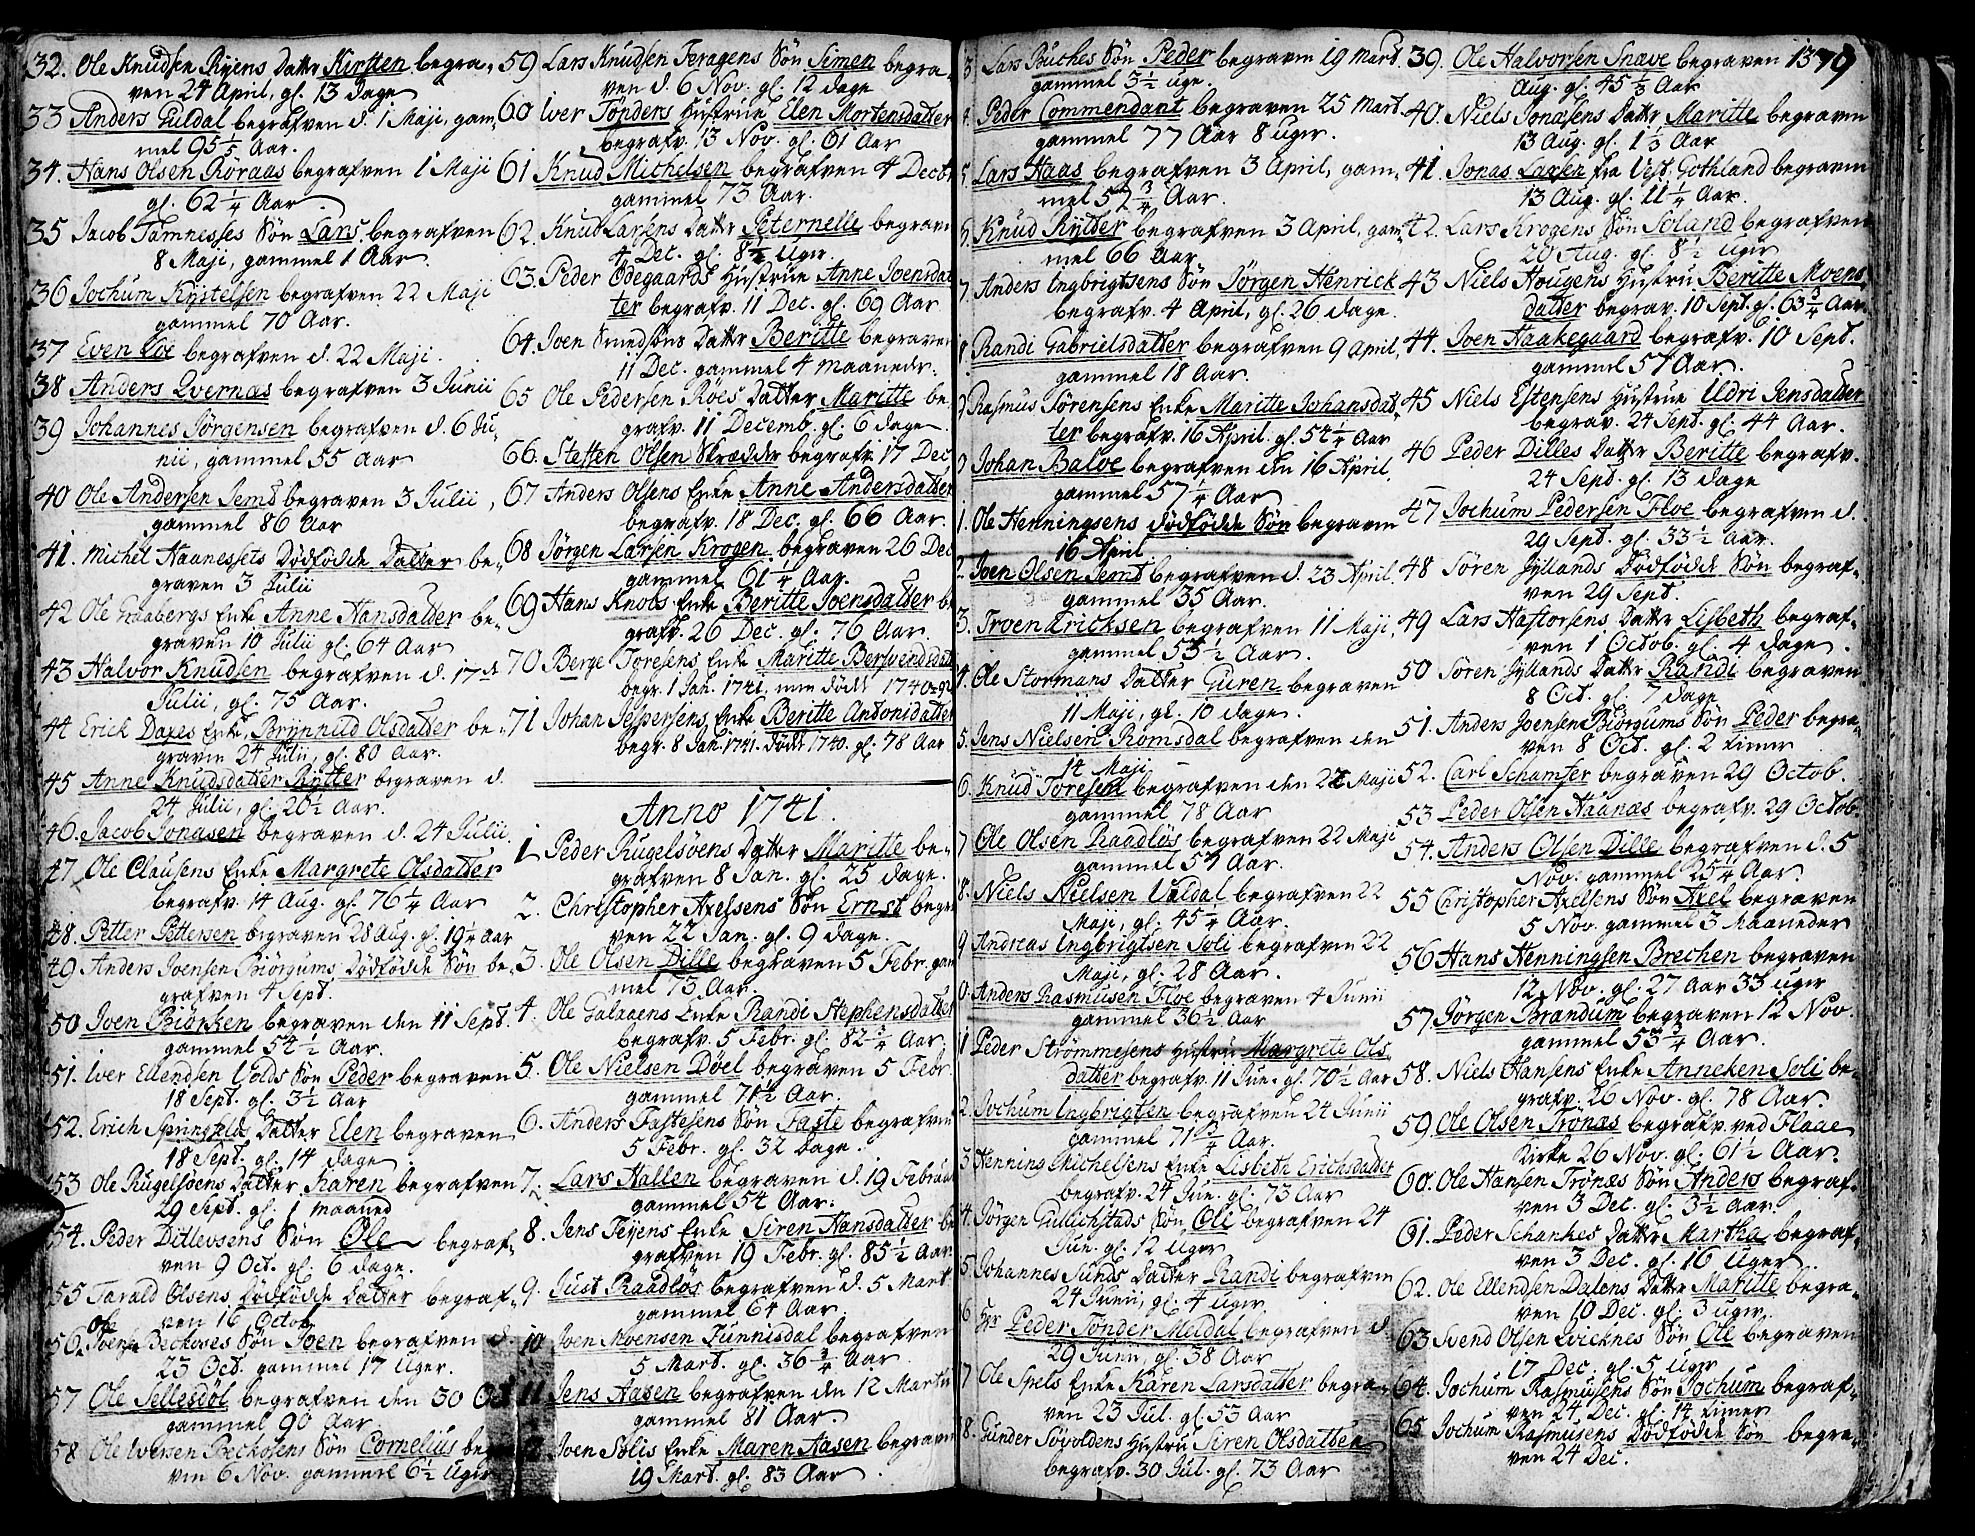 32. Ole Knudsen Ryens Datter Kirsten begra-
ven 24 April, gl. 13 dage
33 Anders Guldal begrafven d. 1 Maji, gam-
mel 95 Aar.
34. Hans Olsen Röraas begrafven 1 Maji
gl. 62 1/4 Aar
35 Jacob Tamnesses Sön Lars begrafven
8 Maji, gammel 1 Aar.
36 Jochum Kystelsen begrafven 22 Maji
gammel 70 Aar.
37 Even begrafven d. 22 Maji.
38 Anders Qvernæs begrafven 3 Junii
39 Johannes Jörgensen begrafven d. 6 Ju-
nii, gammel 55 Aar
40 Ole Andersen Semb begraven 3 Julii,
gammel 86 Aar
41. Michel Haanessets Dödfödde Datter be-
graven 3 Julii
42 Ole Graabergs Enke Anne Hansdatter be-
graven 10 Julii gl. 64 Aar
43 Halvor Knudsen begrafven d. 17de
Julii, gl. 75 Aar.
44 Erick Daxes Enke Brynnild Olsdatter be-
graven 24 Julii, gl. 80 Aar.
45 Anne Knudsdatter Rytter begraven d.
24 Julii, gl. 20 1/2 Aar.
46. Jacob Jonasen begraven d. 24 Julii
47 Ole Clausens Enke Margrete Olsdatter
begrafv. 14 Aug. gl. 76 1/4 Aar
48. Petter Pettersen begraven 28 Aug. gl. 19 1/4 Aar
49 Anders Joensen Biörgums Dödfödde Sön be-
grafven 4 Sept.
50 Joen Biörken begraven den 11 Sept.
gammel 54 1/2 Aar.
51. Iver Ellendsen Volds Sön Peder begraven
18 Sept. gl. 3 1/2 Aar
52. Erich Springfelds Datter Elen begraven
18 Sept. gl. 14 dage
53 Ole Rugelsöens Datter Karen begrafven
29 Sept. gl. 1 maaned
54. Peder Ditlevsens Sön Ole begraf-
ven 9 Oct. gl. 6 dage.
55 Tarald Olsens Dödfödde Datter begraf-
ven 16 Octob.
56. Ole Beckoses Sön Joen begrafven d.
23 Oct. gammel 17 Uger.
57 Ole Sellesdöl begrafven den 30 Oct
gammel 90 Aar.
58 Ole Iversen Beckosens Sön Cornelius
ven 6 Nov. gammel 6 1/2 Uger
59 Lars Knudsen Feragens Sön Simen begra-
ven d. 6 Nov. gl. 12 dage
60 Iver Tönders Hustrue Elen Mortensdatter
begrafv. 13 Nov. gl. 61 Aar
61 Knud Michelsen begrafven 4 Decbr
gammel 73 Aar.
62. Knut Larsens Datter Peternelle begrav
4 Dec. gl. 8 1/2 Uger.
63. Peder Ödegaards Hustrue Anne Joensdat
ter begrafv. 11 Dec. gl. 69 Aar
64. Joen Smedsöns Datter Beritte begraven
11 Dec. gammel 4 maaneder.
65 Ole Pedersen Röes Datter Maritte be-
grafv. 11 Decemb. gl. 6 dage.
66. Steffen Olsen Skrædder begrafv. 17 Dec
67 Anders Olsens Enke Anne Andersdatter
begrafv. 18 Dec. gl. 66 Aar.
68 Jörgen Larsen Krogen begraven 26 Dec
gammel 61 1/4 Aar.
69 Hans Knobs Enke Beritte Joensdatter b
grafv. 26 Dec. gl. 76 Aar.
70 Berge Toresens Enke Maritte Bersvendsdat
begr. 1 Jan. 1741, men döde 1740
71 Johan Jespersens Enke Beritte Antonisdatter
begr. 8 Jan. 1741. döde 1740. gl. 78 Aar
Anno 1741.
1 Peder Rugelsöens Datter Maritte be-
grafven 8 Jan. gl. 25 dage.
2. Christopher Axelsens Sön Ernst begra
ven 22 Jan. gl. 9 dage.
3. Ole Olsen Dille begraven 5 Febr. gam
mel 73 Aar.
4. Ole Galaaens Enke Randi Stephensdatter
begrafv. 5 Febr. gl. 82 3/4 Aar.
5. Ole Nielsen Döel begraven 5 Febr.
gammel 71 1/2 Aar.
6. Anders Fastesens Sön Faste begrafven
5 Febr. gl. 32 Dage.
7. Lars Hallen begraven d. 19 Februar
gammel 54 Aar.
8. Jens Feyens Enke Siren Hansdatter be
grafven 19 Febr. gl. 85 1/2 Aar.
9. Just Raadlös begrafven d. 5 Mart.
gammel 64 Aar.
10 Joen Moensen Funnisdal begrafven
5 Mart. gl. 36 3/4 Aar
11. Jens Aasen begrafven den 12 Martii
gammel 81 Aar.
12. Joen Solis Enke Maren Aasen begraven
19 Mart. gl. 83 Aar
3 Lars Pouches Sön Peder begraven 19 Mart.
gammel 3 1/2 uge.
4. Peder Commendant begraven 25 Mart
gammel 77 Aar 8 uger.
5. Lars Haas begrafven 3 April, gam-
mel 57 3/4 Aar.
6. Knud Rytter begrafven 3 April, gam-
mel 66 Aar.
7. Anders Ingbrigtsens Sön Jörgen Henrick
begrafv. 4 April, gl. 26 dage.
8. Randi Gabrielsdatter begrafven 9 April,
gammel 18 Aar.
9 Rasmus Sörensens Enke Maritte Johansdat
ter begrafv. 16 April. gl. 54 1/4 Aar
0 Johan Balve begrafven den 16 April,
gammel 57 1/4 Aar
1. Ole Henningsens dödfödde Sön begraven
16 April
2. Joen Olsen Semb begrafven d. 23 April,
gammel 35 Aar.
3. Troen Ericksen begrafven 11 Maji,
gammel 55 1/2 Aar.
4. Ole Stormans Datter Guren begraven
11 Maji, gl. 10 dage.
5. Jens Nielsen Romsdal begrafven den
14 Maji
6. Knud Toresen begrafven den 22 Maji
gammel 78 Aar
7 Ole Olsen Raadlös begrafven 22 Maji
gammel 57 Aar.
8. Niels Nielsen Valdal begrafven 22
Maji, gl. 45 Aar.
9 Andreas Ingbrigtsen Soli begrafven 22
Maji, gl. 28 Aar.
0. Anders Rasmusen Floe begraven 4 Junii
gammel 36 1/2 Aar
1 Peder Strömmesens Hustru Margrete Ols
datter begrafv. 11 Jun. gl. 70 1/2 Aar
2. Jochum Ingbrigtsen begrafven 24 Junii
gammel 71 3/4 Aar.
3 Henning Michelsens Enke Lisbeth Erichsdatter
begrafv. 24 Jun. gl. 73 Aar
4. Jörgen Gullichstads Sön Ole begrafven 24
Jun. gl. 12 Uger
5. Johannes Sunds Datter Randi begrafven
24 Junii, gl. 4 uger.
6 Hr Peder Tönder Meldal begrafven d.
29 Junii, gl. 38 Aar
7 Ole Spels Enke Karen Larsdatter begra-
ven 23 Jul. gl. 53 Aar
8. Gunder Sövoldens Hustru Siren Olsdatter
begrafv. 30 Jul. gl. 73 Aar
39. Ole Halvorsen Snave begraven 13
Aug. gl. 45 1/3 Aar
79
40. Niels Jonasens Datter Maritte begraven
13 Aug. gl. 1 1/3 Aar
41. Jonas Larsen fra Vest Gothland begraven
13 Aug. gl. 11 1/4 Aar.
42. Lars Krogens Sön begrafven
20 Aug. gl. 8 1/2 Uger
43 Niels Hougens Hustru Beritte Moens
datter begrav. 10 Sept. gl. 63 3/4 Aar.
44. Joen Haakegaard begrafv. 10 Sept.
gammel 57 Aar.
45 Niels Estensens Hustrue Uldri Jensdatter
begrav. 24 Sept. gl. 44 Aar.
46 Peder Dilles Datter Beritte begrafv.
24 Sept. gl. 13 dage
47 Jochum Pedersen Floe begrafven d.
29 Sept. gl. 33 1/2 Aar.
48 Sören Jyllands Dödfödde Sön begraf-
ven 29 Sept.
49 Lars Haftorsens Datter Lisbeth begraf-
ven 1 Octob. gl. 4 dage.
50 Sören Jyllands Datter Randi begraven
8 Oct. gl. 7 dage
51. Anders Joensen Biörgums Sön Peder begra-
ven 8 Oct. gl. 2 timer
52. Carl Schamfer begraven 29 Octob.
53 Peder Olsen Haanæs begrafv. 29 Octob.
54. Anders Olsen Dille begrafven d. 5
Nov. gammel 25 1/4 Aar.
55 Christopher Axelsens Sön Axel begraven
5 Nov. gammel 3 Maaneder
56 Hans Henningsen Brechen begraven
12 Nov. gl. 27 Aar 33 uger
57 Jörgen Brandum begraven 12 Nov.
gammel 53 3/4 Aar.
58. Niels Hansens Enke Anneken Soli be-
grafv. 26 Nov. gl. 78 Aar.
59 Ole Olsen Trönæs begrafv. ved Flaae
Kirke 26 Nov. gl. 61 1/2 Aar.
60. Ole Hansen Trönæs Sön Anders begraf-
ven 3 Dec. gl. 3 1/2 Aar.
61. Peder Schankes Datter Martha begraf-
ven 3 Dec. gl. 16 Uger.
62. Ole Ellendsen Dalens Datter Maritte begra-
ven 10 Dec. gl. 3 uger.
63 Svend Olsen Qvicknes Sön Ole begraven
17 Dec. gl. 5 uger
64. Jochum Rasmusens Sön Jochum begraf-
ven 24 Dec. gl. 14 timer
65 Jochum Rasmusens Dödfödde Sön begra-
ven 24 Dec.